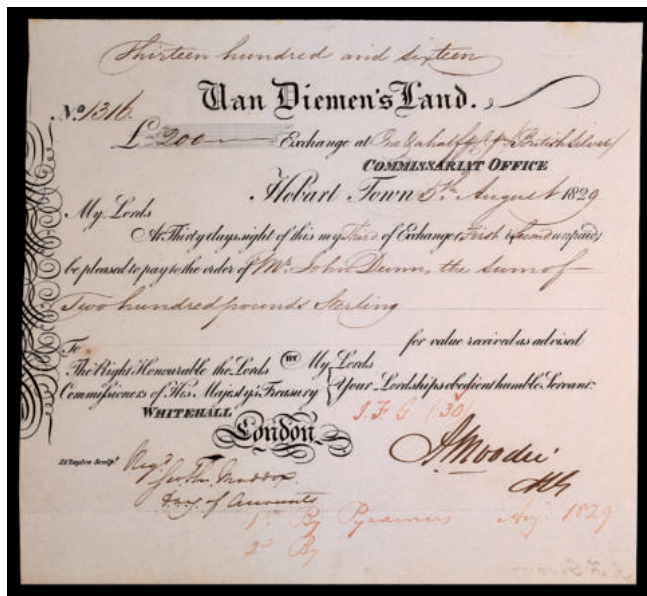 Thirteen hundred and sixteen
Van Diemen's Land.
No. 1316.
£ 200 Exchange at One & a half British Silver
COMMISSARIAT OFFICE
Hobart Town 5th August 1829
My Lords
At Thirty days sight of this my Third of Exchange (First & Second unpaid)
be pleased to pay to the order of Mr. John Dunn, the Sum of
Two hundred pounds Sterling
for value received as advised
To
The Right Honourable the Lords BY My Lords
Commissioners of His Majesty's Treasury Your Lordships obedient humble Servant
WHITEHALL J. F. G (30)
London A Moodie
Regd.
Maddox
of Accounts
1st By Pyramus Aug. 1829
2nd By